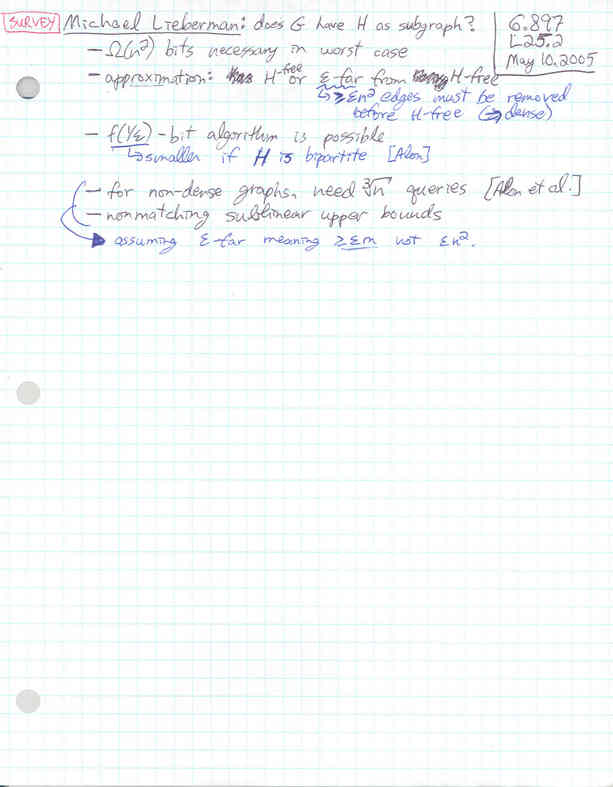 SURVEY Michael Lieberman: does G have H as subgraph?
6.897
L25.2
May 10, 2005
– Ω(n²) bits necessary in worst case
– approximation: H-free or ε-far from H-free
↳ ≥εn² edges must be removed
before H-free (⇒ dense)
– f(1/ε)-bit algorithm is possible
↳ smaller if H is bipartite [Alon]
– for non-dense graphs, need ∛n queries [Alon et al.]
– nonmatching sublinear upper bounds
assuming ε-far meaning ≥εm not εn².